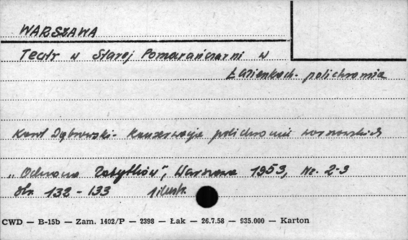 WARSZAWA
Teatr w Starej Pomarańczarni w
Łazienkach. polichromia
Karol Dąbrowski - Konserwacja polichromii warszawskich
"Ochrona Zabytków", Warszawa 1953, Nr. 2-3
str. 132 - 133 1 ilustr.
CWD — B-15b — Zam. 1402/P — 2398 — Łak — 26.7.58 — 535.000 — Karton